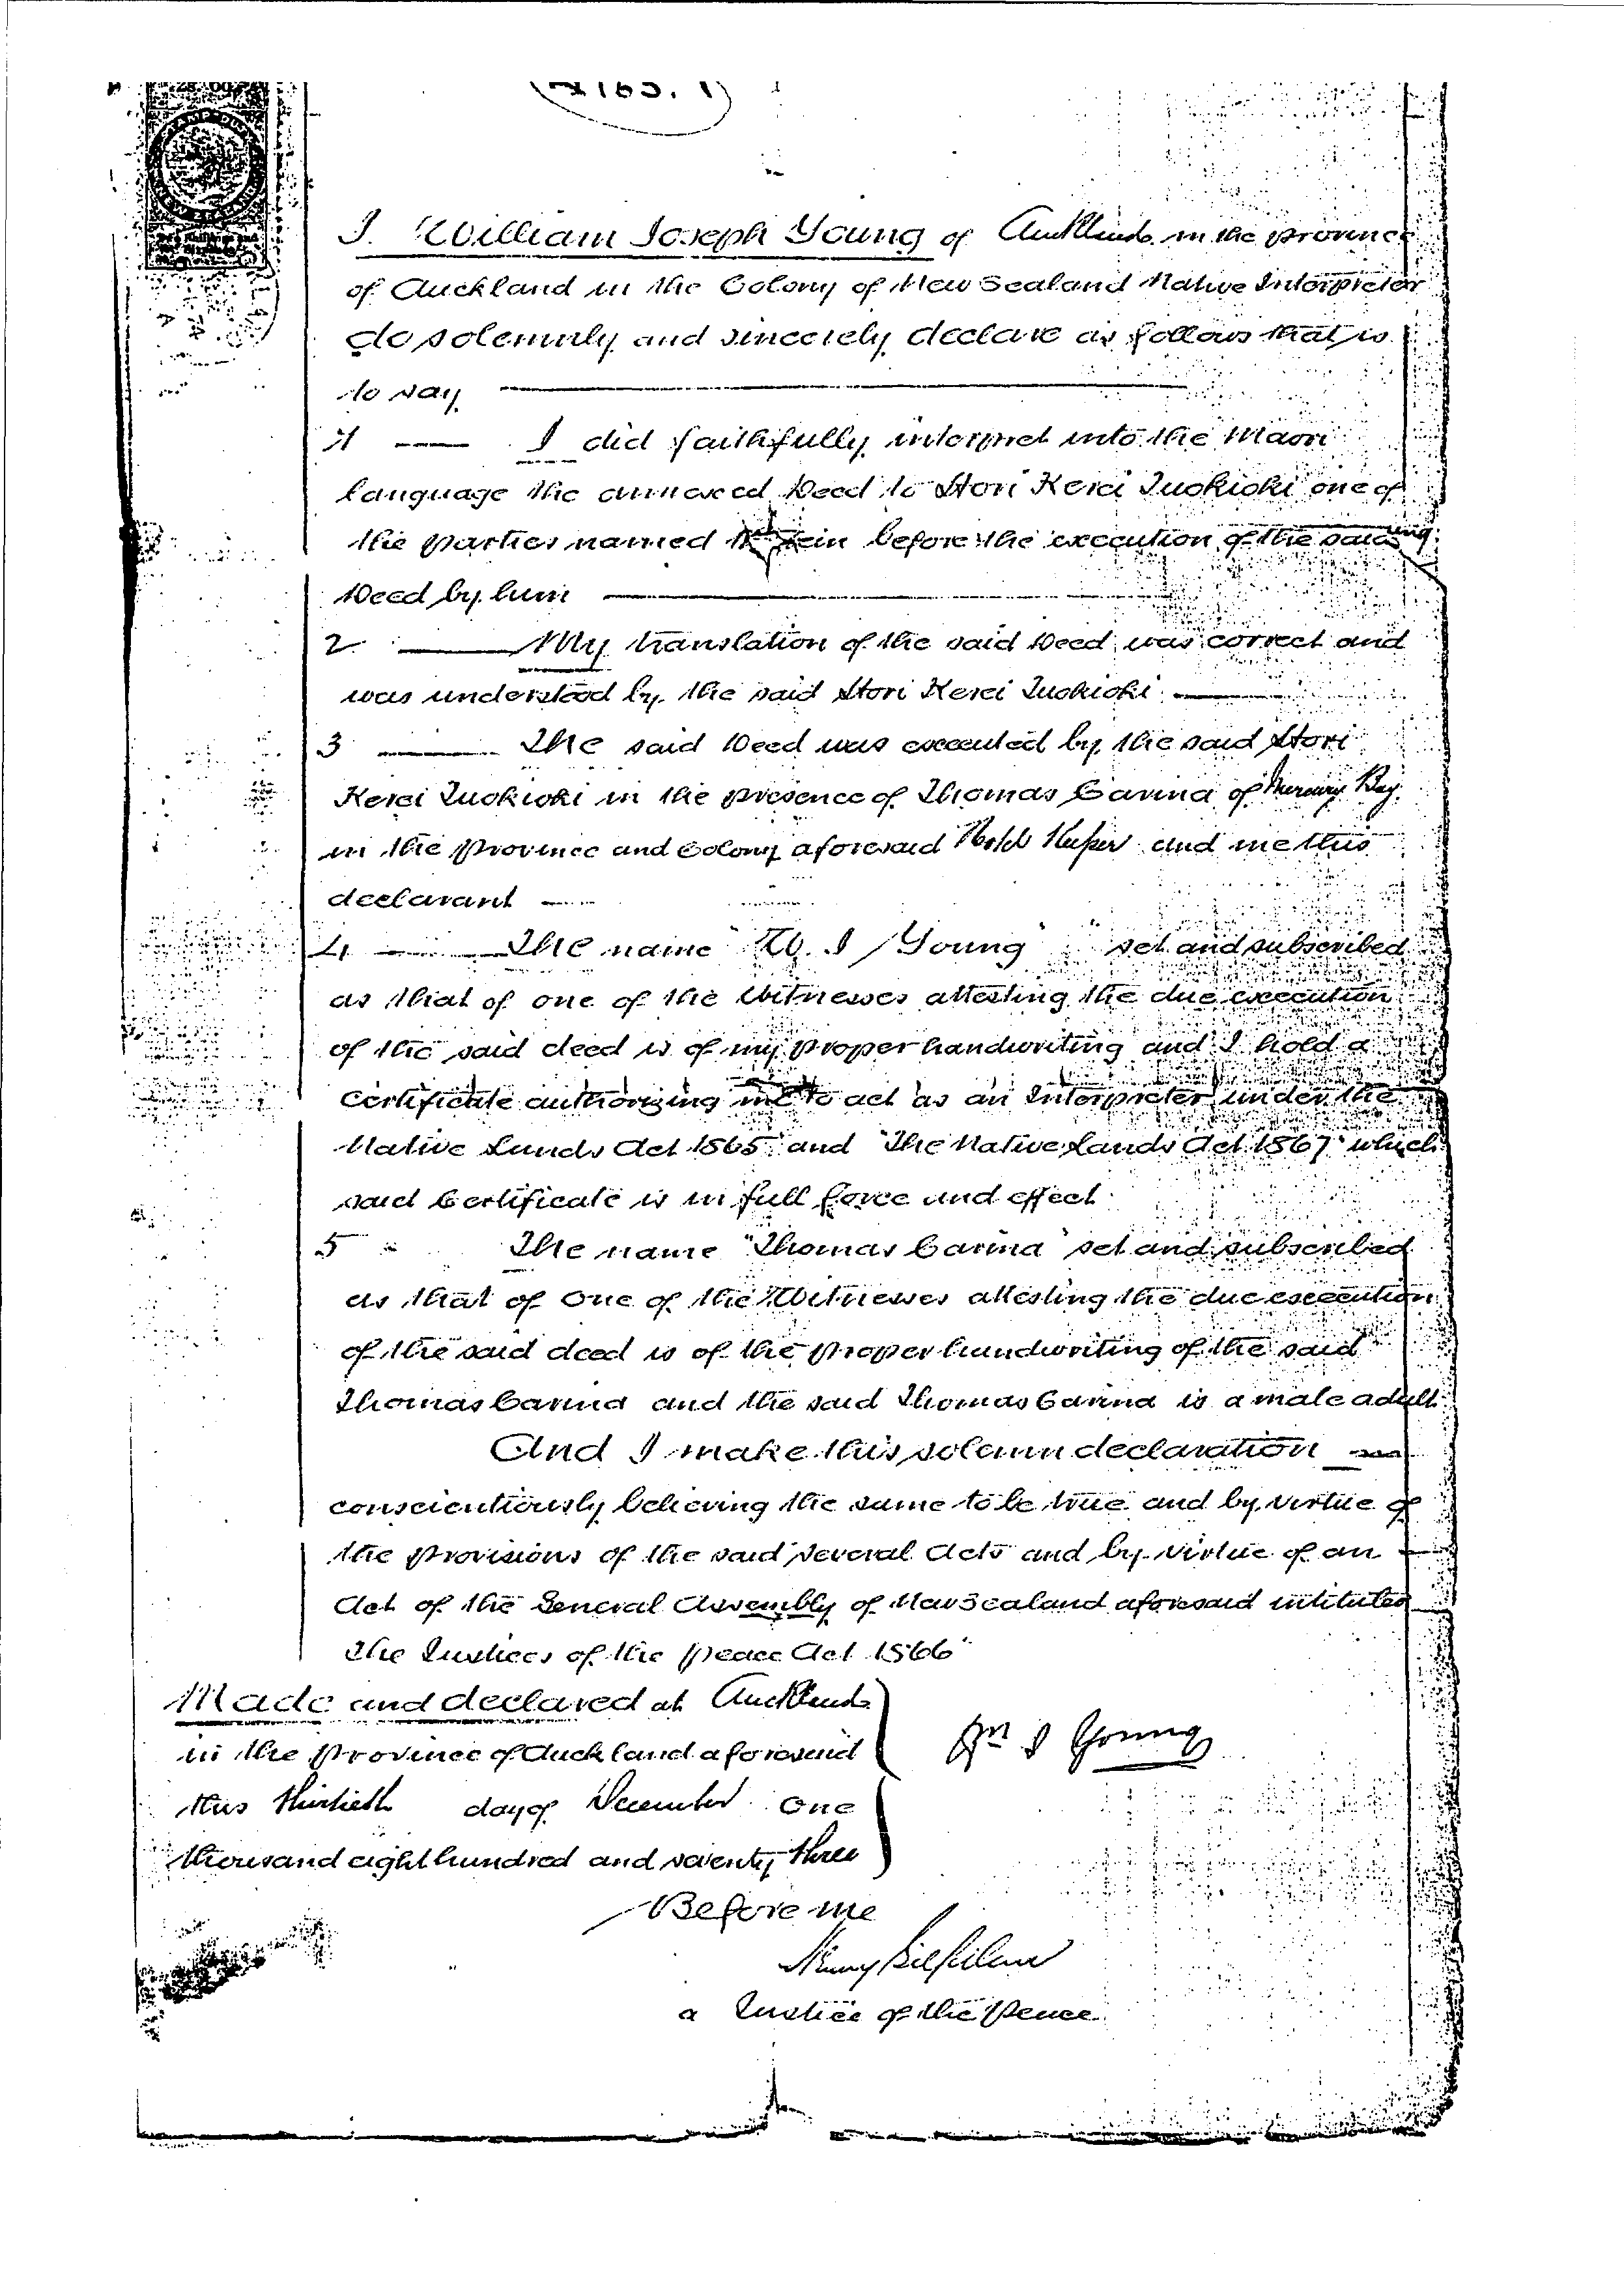 I. William Joseph Young of Auckland in the province
of Auckland in the Colony of New Zealand Native Interpreter
do solemnly and sincerely declare as follows that is
to say
1 I did faithfully interpret into the Maori
language the annexed Deed to Hori Kerei Tuokioki one of
the parties named before the execution of the said
Deed by him
2 My translation of the said Deed was correct and
was understood by the said Hori Kerei Tuokioki
3 The said Deed was executed by the said Hori
Kerei Tuokioki in the presence of Thomas Carina of Mercury Bay
in the Province and Colony aforesaid Hotel Keeper and me this
declarant
4 The name "W. J Young" set and subscribed
as that of one of the Witnesses attesting the due execution
of the said deed is of my proper handwriting and I hold a
Certificate authorizing me to act as an Interpreter under the
Native Lands Act 1865" and "The Native Lands Act 1867" which
said Certificate is in full force and effect
5 The name "Thomas Carina" set and subscribed
as that of one of the Witnesses attesting the due execution
of the said deed is of the proper handwriting of the said
Thomas Carina and the said Thomas Carina is a male adult
And I make this solemn declaration
conscientiously believing the same to be true and by virtue of
the provisions of the said several Acts and by virtue of an
Act of the General Assembly of New Zealand aforesaid intituled
The Justices of the Peace Act 1866"
Made and declared at Auckland
in the Province of Auckland aforesaid
this thirtieth day of December One
thousand eight hundred and seventy three
Wm J Young
Before me
a Justice of the Peace